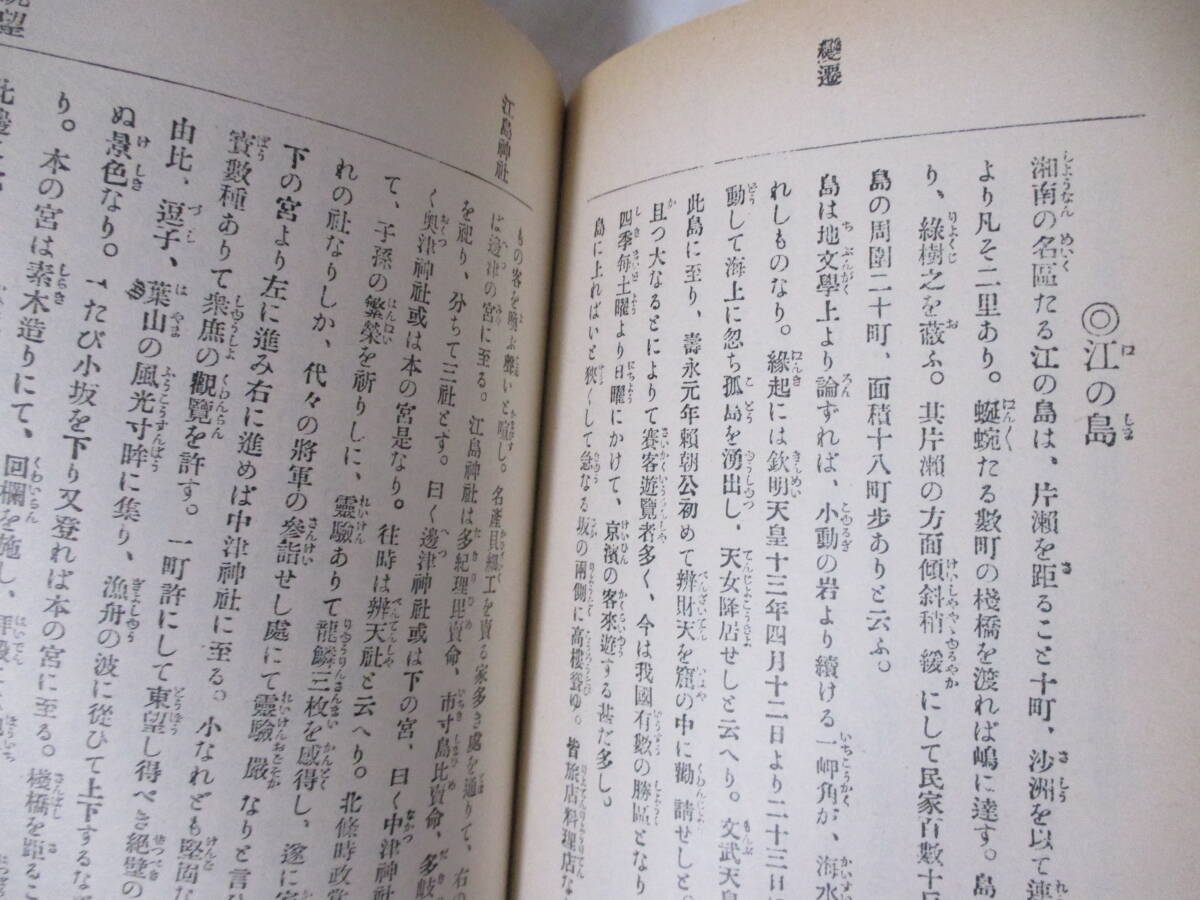 變遷
◎江の島
湘南の名區たる江の島は、片瀨を距ること十町、沙洲を以て連
より凡そ二里あり。蜿蜒たる數町の棧橋を渡れば嶋に達す。島
り、綠樹之を蔽ふ。其片瀨の方面傾斜稍緩にして民家百數十戶
島の周圍二十町、面積十八町步ありと云ふ。
島は地文學上より論ずれば、小動の岩より續ける一岬角が、海水
れしものなり。緣起には欽明天皇十三年四月十二日より二十三日に
動して海上に忽ち孤島を湧出し、天女降居せしと云へり。文武天皇
此島に至り、壽永元年賴朝公初めて辨財天を窟の中に勸請せしと
且つ大なるとによりて賽客遊覽者多く、今は我國有數の勝區となり
四季每土曜より日曜にかけて、京濱の客來遊する甚だ多し。
島に上ればいと狹くして急なる坂の兩側に高樓聳ゆ。皆旅店料理店な
江島神社
もの客を喚ぶ聲いと喧し。名產貝細工を賣る家多き處を通りて、右の
ば邊津の宮に至る。江島神社は多紀理毘賣命、市寸島比賣命、多岐
を祀り、分ちて三社とす。曰く邊津神社或は下の宮、曰く中津神社
く奧津神社或は本の宮是なり。往時は辨天社と云へり。北條時政當
て、子孫の繁榮を祈りしに、靈驗ありて龍鱗三枚を感得し、遂に家
れの社なりしか、代々の將軍の參詣せし處にて靈驗嚴なりと言ひ
下の宮より左に進み右に進めば中津神社に至る。小なれども堅固な
寶數種ありて衆庶の觀覽を許す。一町許にして東望し得べき絕壁の
由比、逗子、葉山の風光寸眸に集り、漁舟の波に從ひて上下するな
ぬ景色なり。一たび小坂を下り又登れば本の宮に至る。棧橋を距るこ
り。本の宮は素木造りにて、回欄を施し、拜殿
此邊
眺望